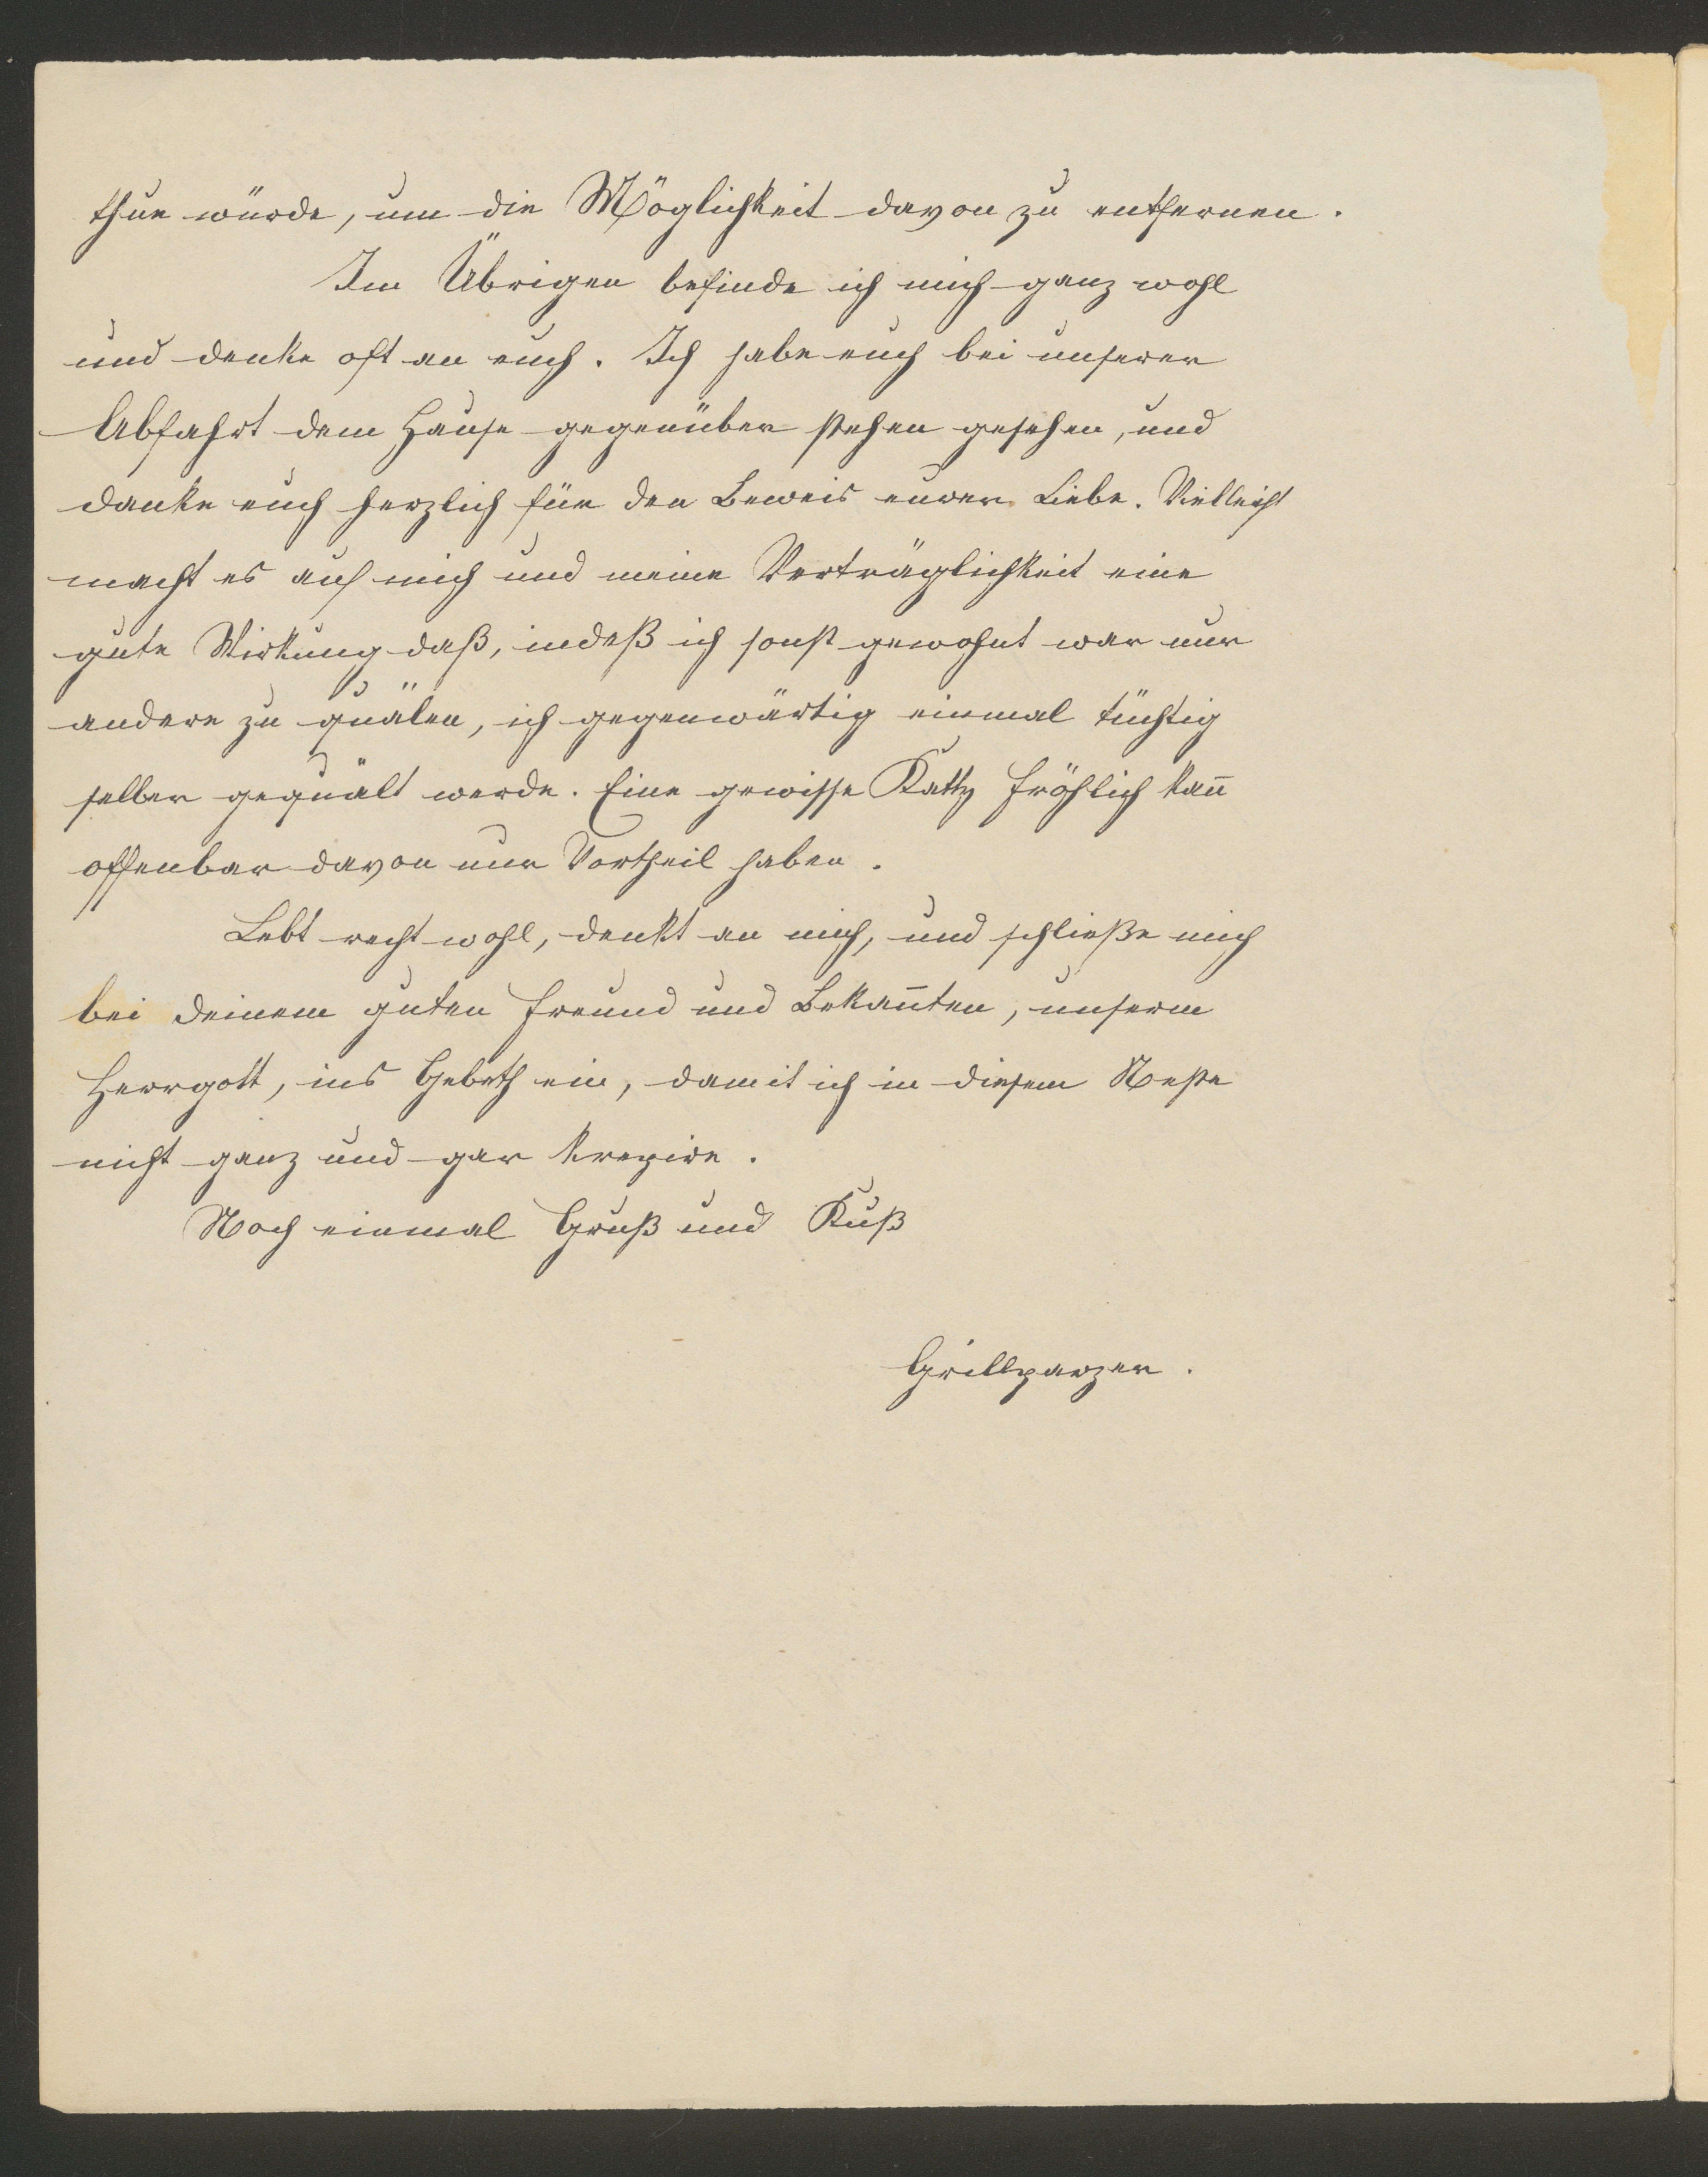 thun würde, um die Möglichkeit davon zu entfernen.
Im Übrigen befinde ich mich ganz wohl
und denke oft an euch. Ich habe euch bei unserer
Abfahrt dem Hause gegenüber stehen gesehen, und
danke euch herzlich für den Beweis eurer Liebe. Vielleicht
macht es auf mich und meine Verträglichkeit eine
gute Wirkung daß, indeß ich sonst gewohnt war nur
andere zu quälen, ich gegenwärtig einmal tüchtig
selber gequält werde. Eine gewisse Katty Fröhlich kan̄
offenbar davon nur Vortheil haben.
Lebt recht wohl, denkt an mich, und schließe mich
bei deinem guten Freund und Bekan̄ten, unserm
Herrgott, ins Gebeth ein, damit ich in diesem Neste
nicht ganz und gar krepire.
Noch einmal Gruß und Kuß
Grillparzer.